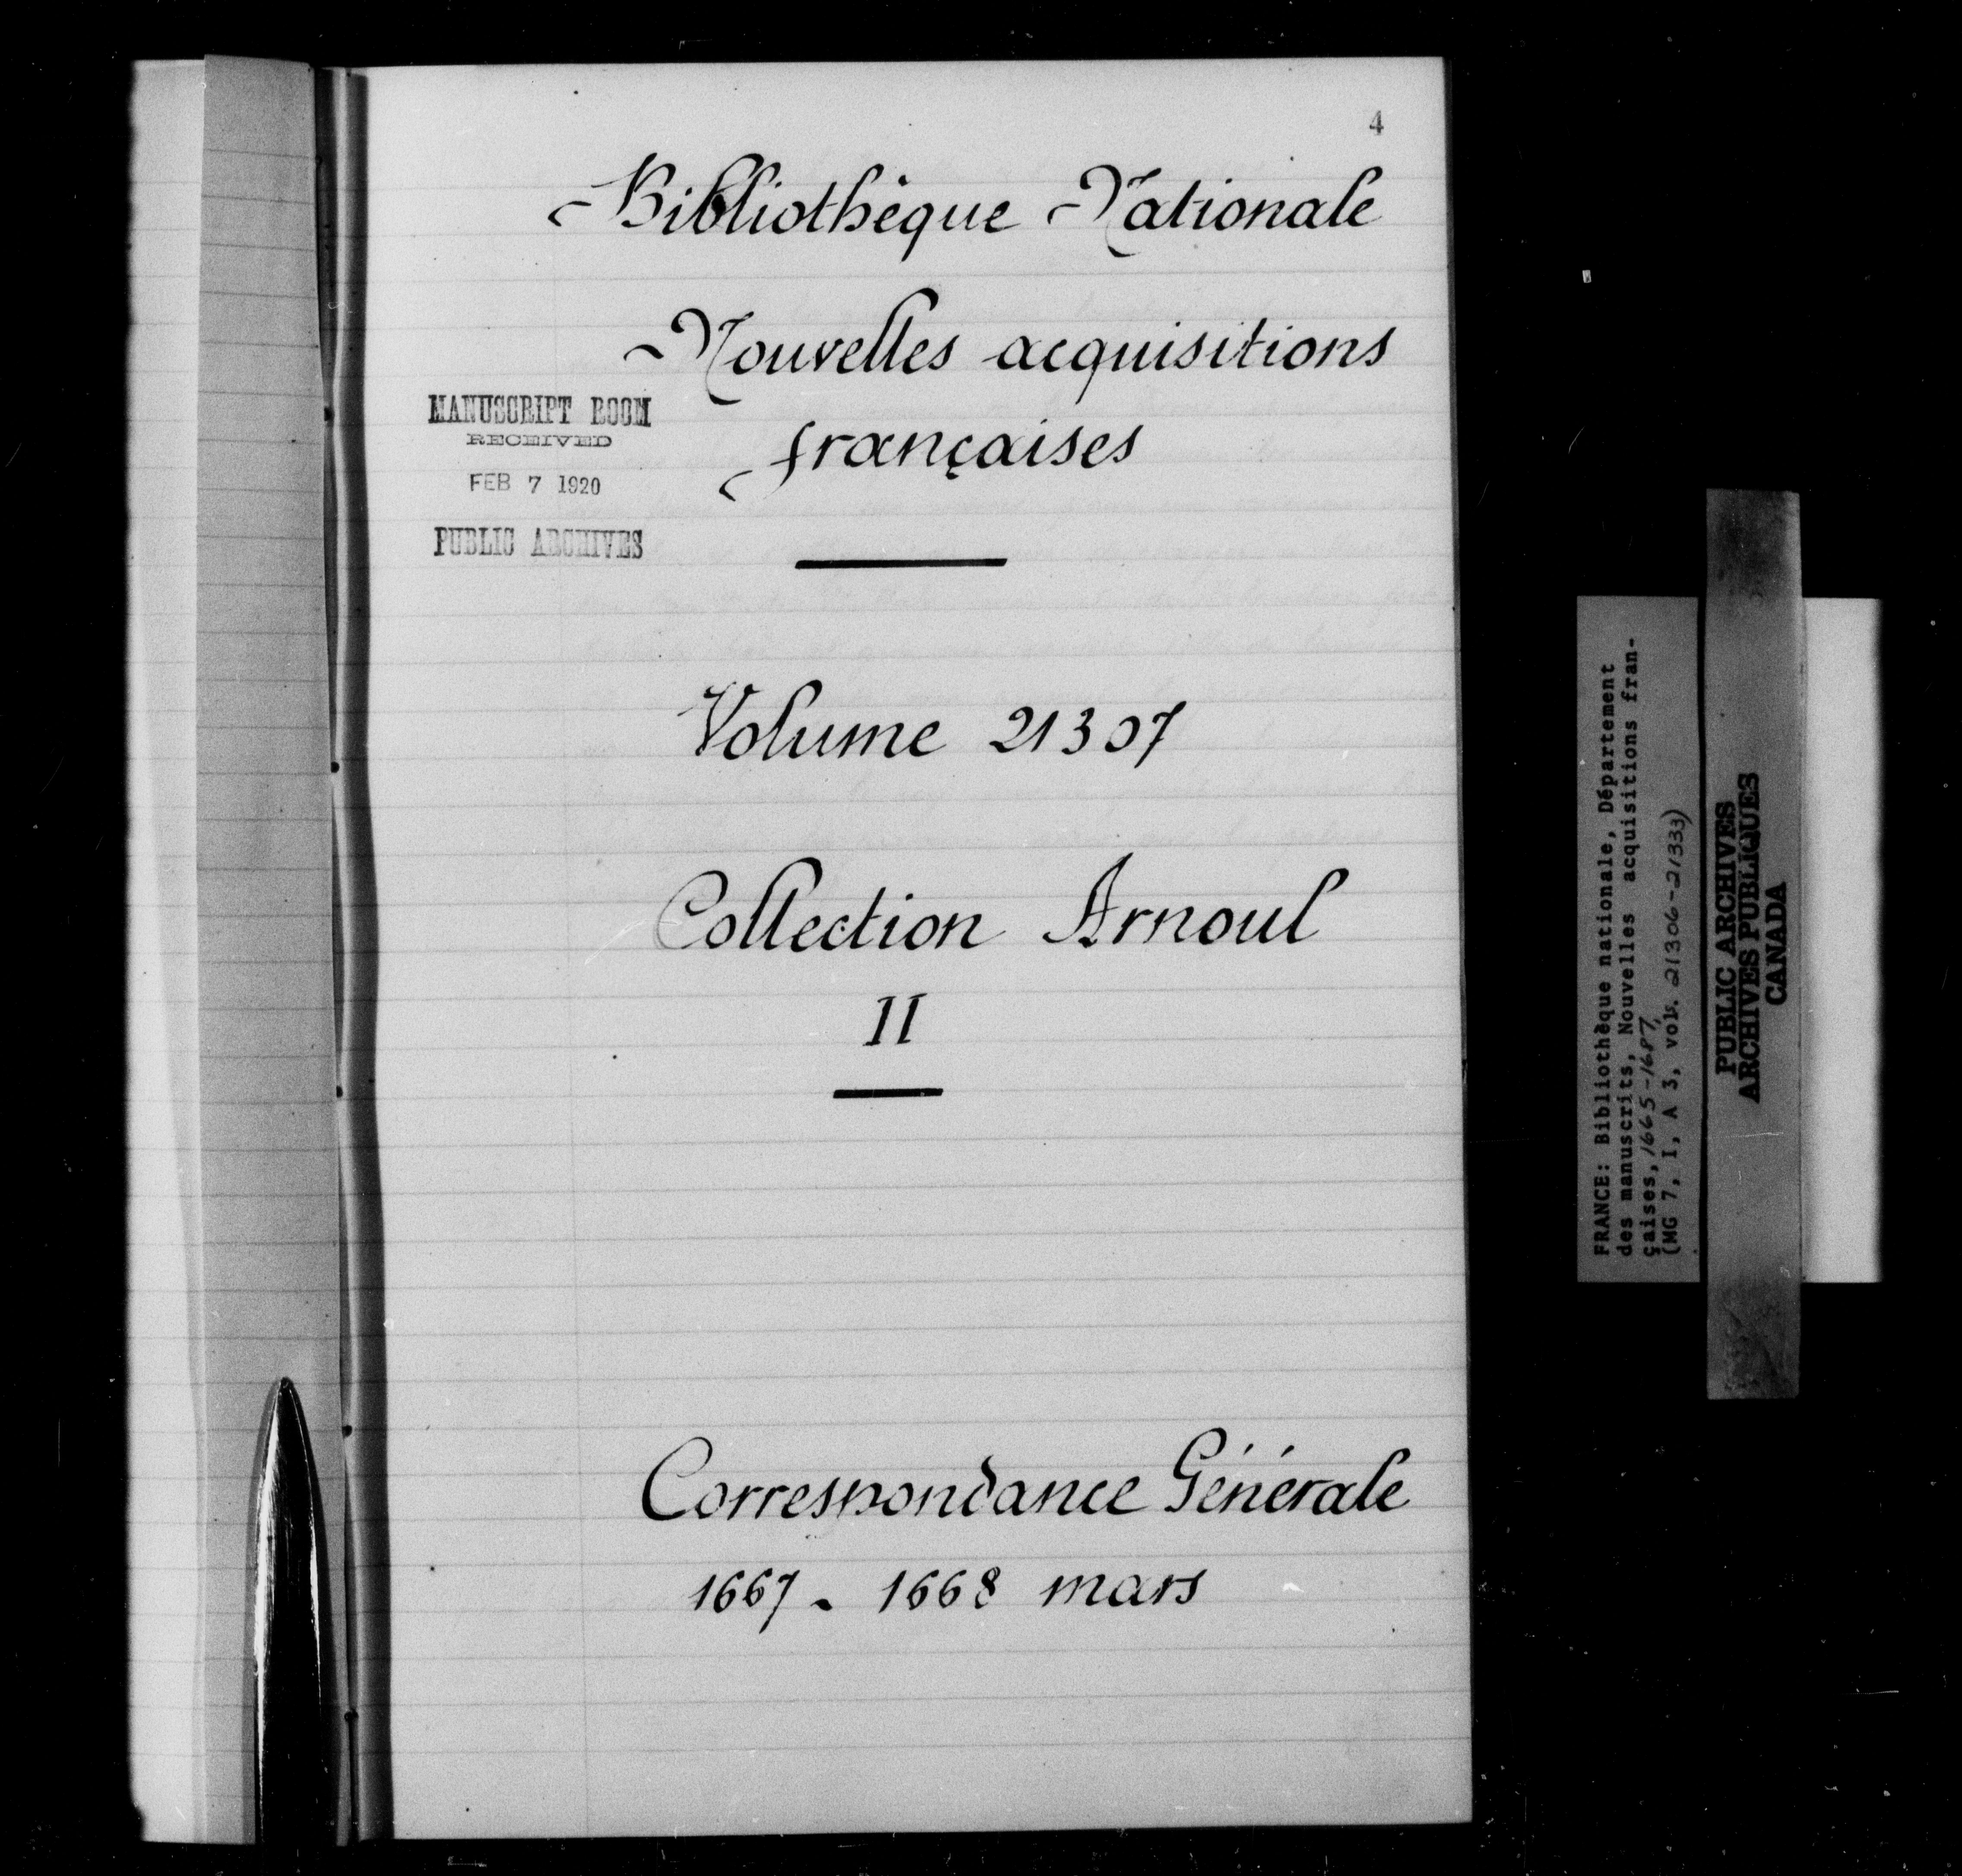 4
Bibliothèque Nationale
Nouvelles acquisitions
françaises
MANUSCRIPT ROOM
RECEIVED
FEB 7 1920
PUBLIC ARCHIVES
Volume 21307
Collection Arnoul
II
Correspondance Générale
1667 - 1668 mars
FRANCE: Bibliothèque nationale, Département
des manuscrits, Nouvelles acquisitions fran-
çaises, 1665-1687,
(MG 7, I, A 3, vols. 21306-21333)
PUBLIC ARCHIVES
ARCHIVES PUBLIQUES
CANADA